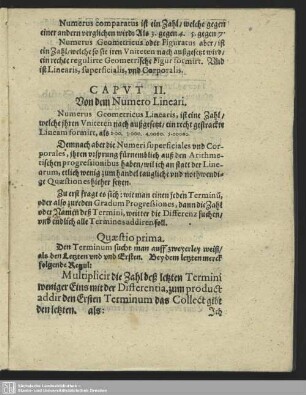 Numerus comparatus ist ein Zahl/ welche gegen
einer andern verglichen wird: Als 3. gegen 4. 5. gegen 7.
Numerus Geometricus oder Figuratus aber/ ist
ein Zahl/ welche so sie iren Vniteten nach außgesetzt wird/
ein rechte regulirte Geometrische Figur formirt. Vnd
ist Linearis, superficialis, vnd Corporalis.
CAPVT II.
Von dem Numero Lineari.
Numerus Geometricus Linearis, ist eine Zahl/
welche ihren Vniteten nach außgesetzt/ ein recht gestrackte
Lineam formirt, als
Demnach aber die Numeri superficiales vnd Cor-
porales, ihren vrsprung fürnemlich auß den Arithme-
rischen progressionibus haben/ wil ich an statt der Line-
arum, etlich wenig zum handel taugliche vnd nothwendi-
ge Quæstiones hieher setzen.
Zu erst fragt es sich: wie man einen jeden Terminũ,
oder also zu reden Gradum Progressiones, dann die Zahl
oder Namen deß Termini, weitter die Differenz suchen/
vnd endlich alle Terminos addiren soll.
Quæstio prima.
Den Terminum sucht man auff zweyerley weiß/
als den Letzten vnd vnd Ersten. Bey dem letzten merck
folgende Regul:
Multiplicir die Zahl deß letzten Termini
weniger Eins mit der Differentia, zum product
addir den Ersten Terminum das Collect gibt
den letzten. als:
Ich